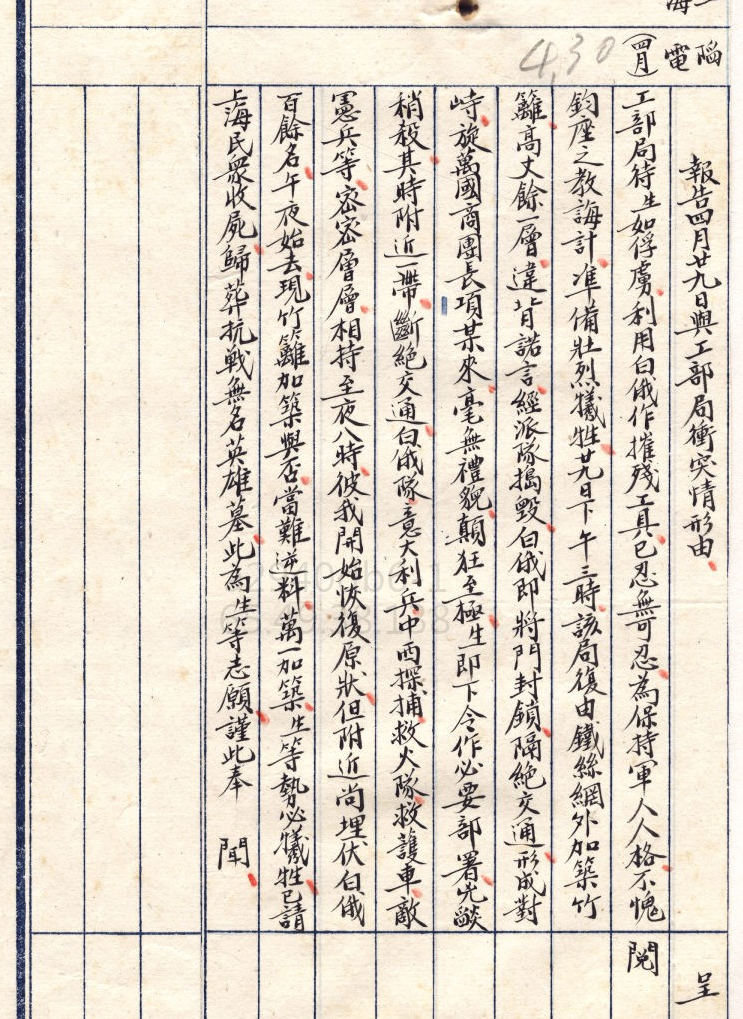 海
電
(四月)
4,30
報告四月廿九日與工部局衝突情形由
呈
工部局待生如俘虜利用白俄作摧殘工具已忍無可忍為保持軍人人格不愧
閱
鈞座之教誨計準備壯烈犧牲廿九日下午三時該局復由鐵絲網外加築竹
籬高丈餘一層違背諾言經派隊搗毀白俄即將門封鎖隔絕交通形成對
峙旋萬國商團長項某來毫無禮貌顛狂至極生即下令作必要部署兇燄
稍殺其時附近一帶斷絕交通白俄隊意大利兵中西探捕救火隊救護車敵
憲兵等密密層層相持至夜八時彼我開始恢復原狀但附近尚埋伏白俄
百餘名午夜始去現竹籬加築與否當難逆料萬一加築生等勢必犧牲已請
上海民眾收屍歸葬抗戰無名英雄墓此為生等志願謹此奉 聞